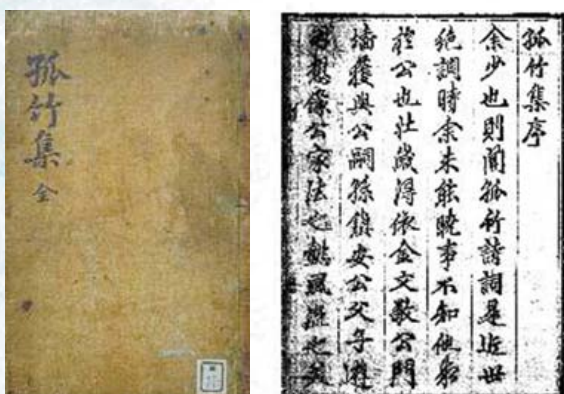 孤竹集
全
孤竹集序
余少也則聞孤竹詩詞是近世
絶調時余未能曉事不知他
於公也壯歲得依金文敬公門
墻獲與公嗣孫鎮安公父子遊
想像公家法也風流也